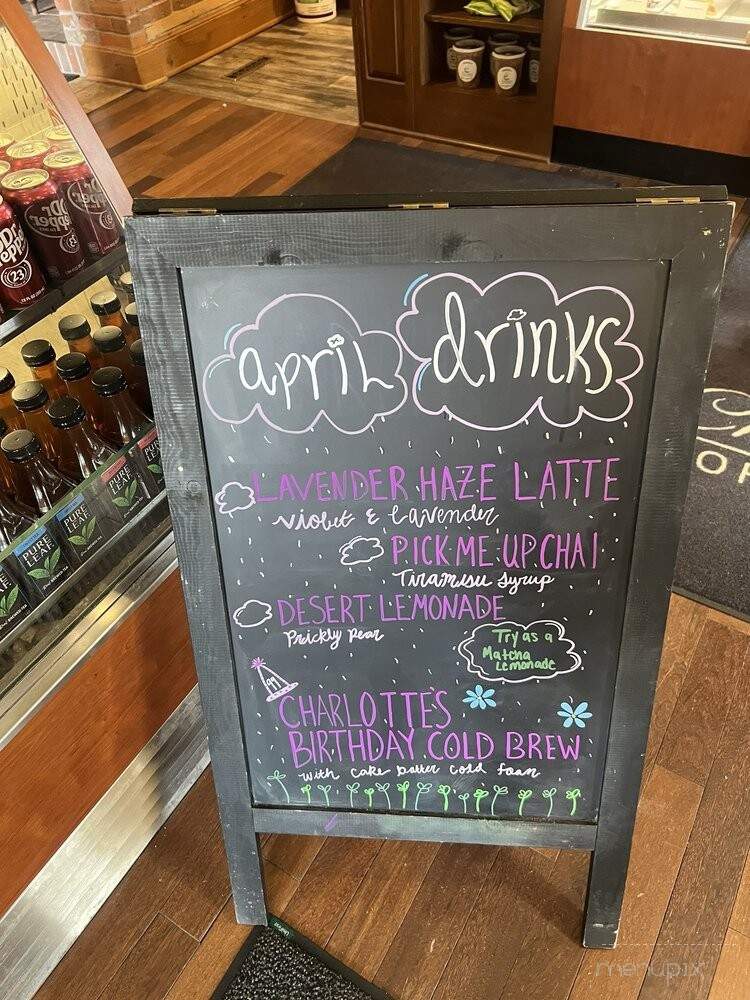 april drinks
LAVENDER HAZE LATTE
violet & lavender
PICK ME UP CHAI
Tiramisu syrup
DESERT LEMONADE
Prickly Pear
Try as a
Matcha
Lemonade
CHARLOTTE'S
BIRTHDAY COLD BREW
with cake batter cold foam
Dr Pepper
23
PURE
LEAF
PURE
LEAF
PURE
LEAF
menupix